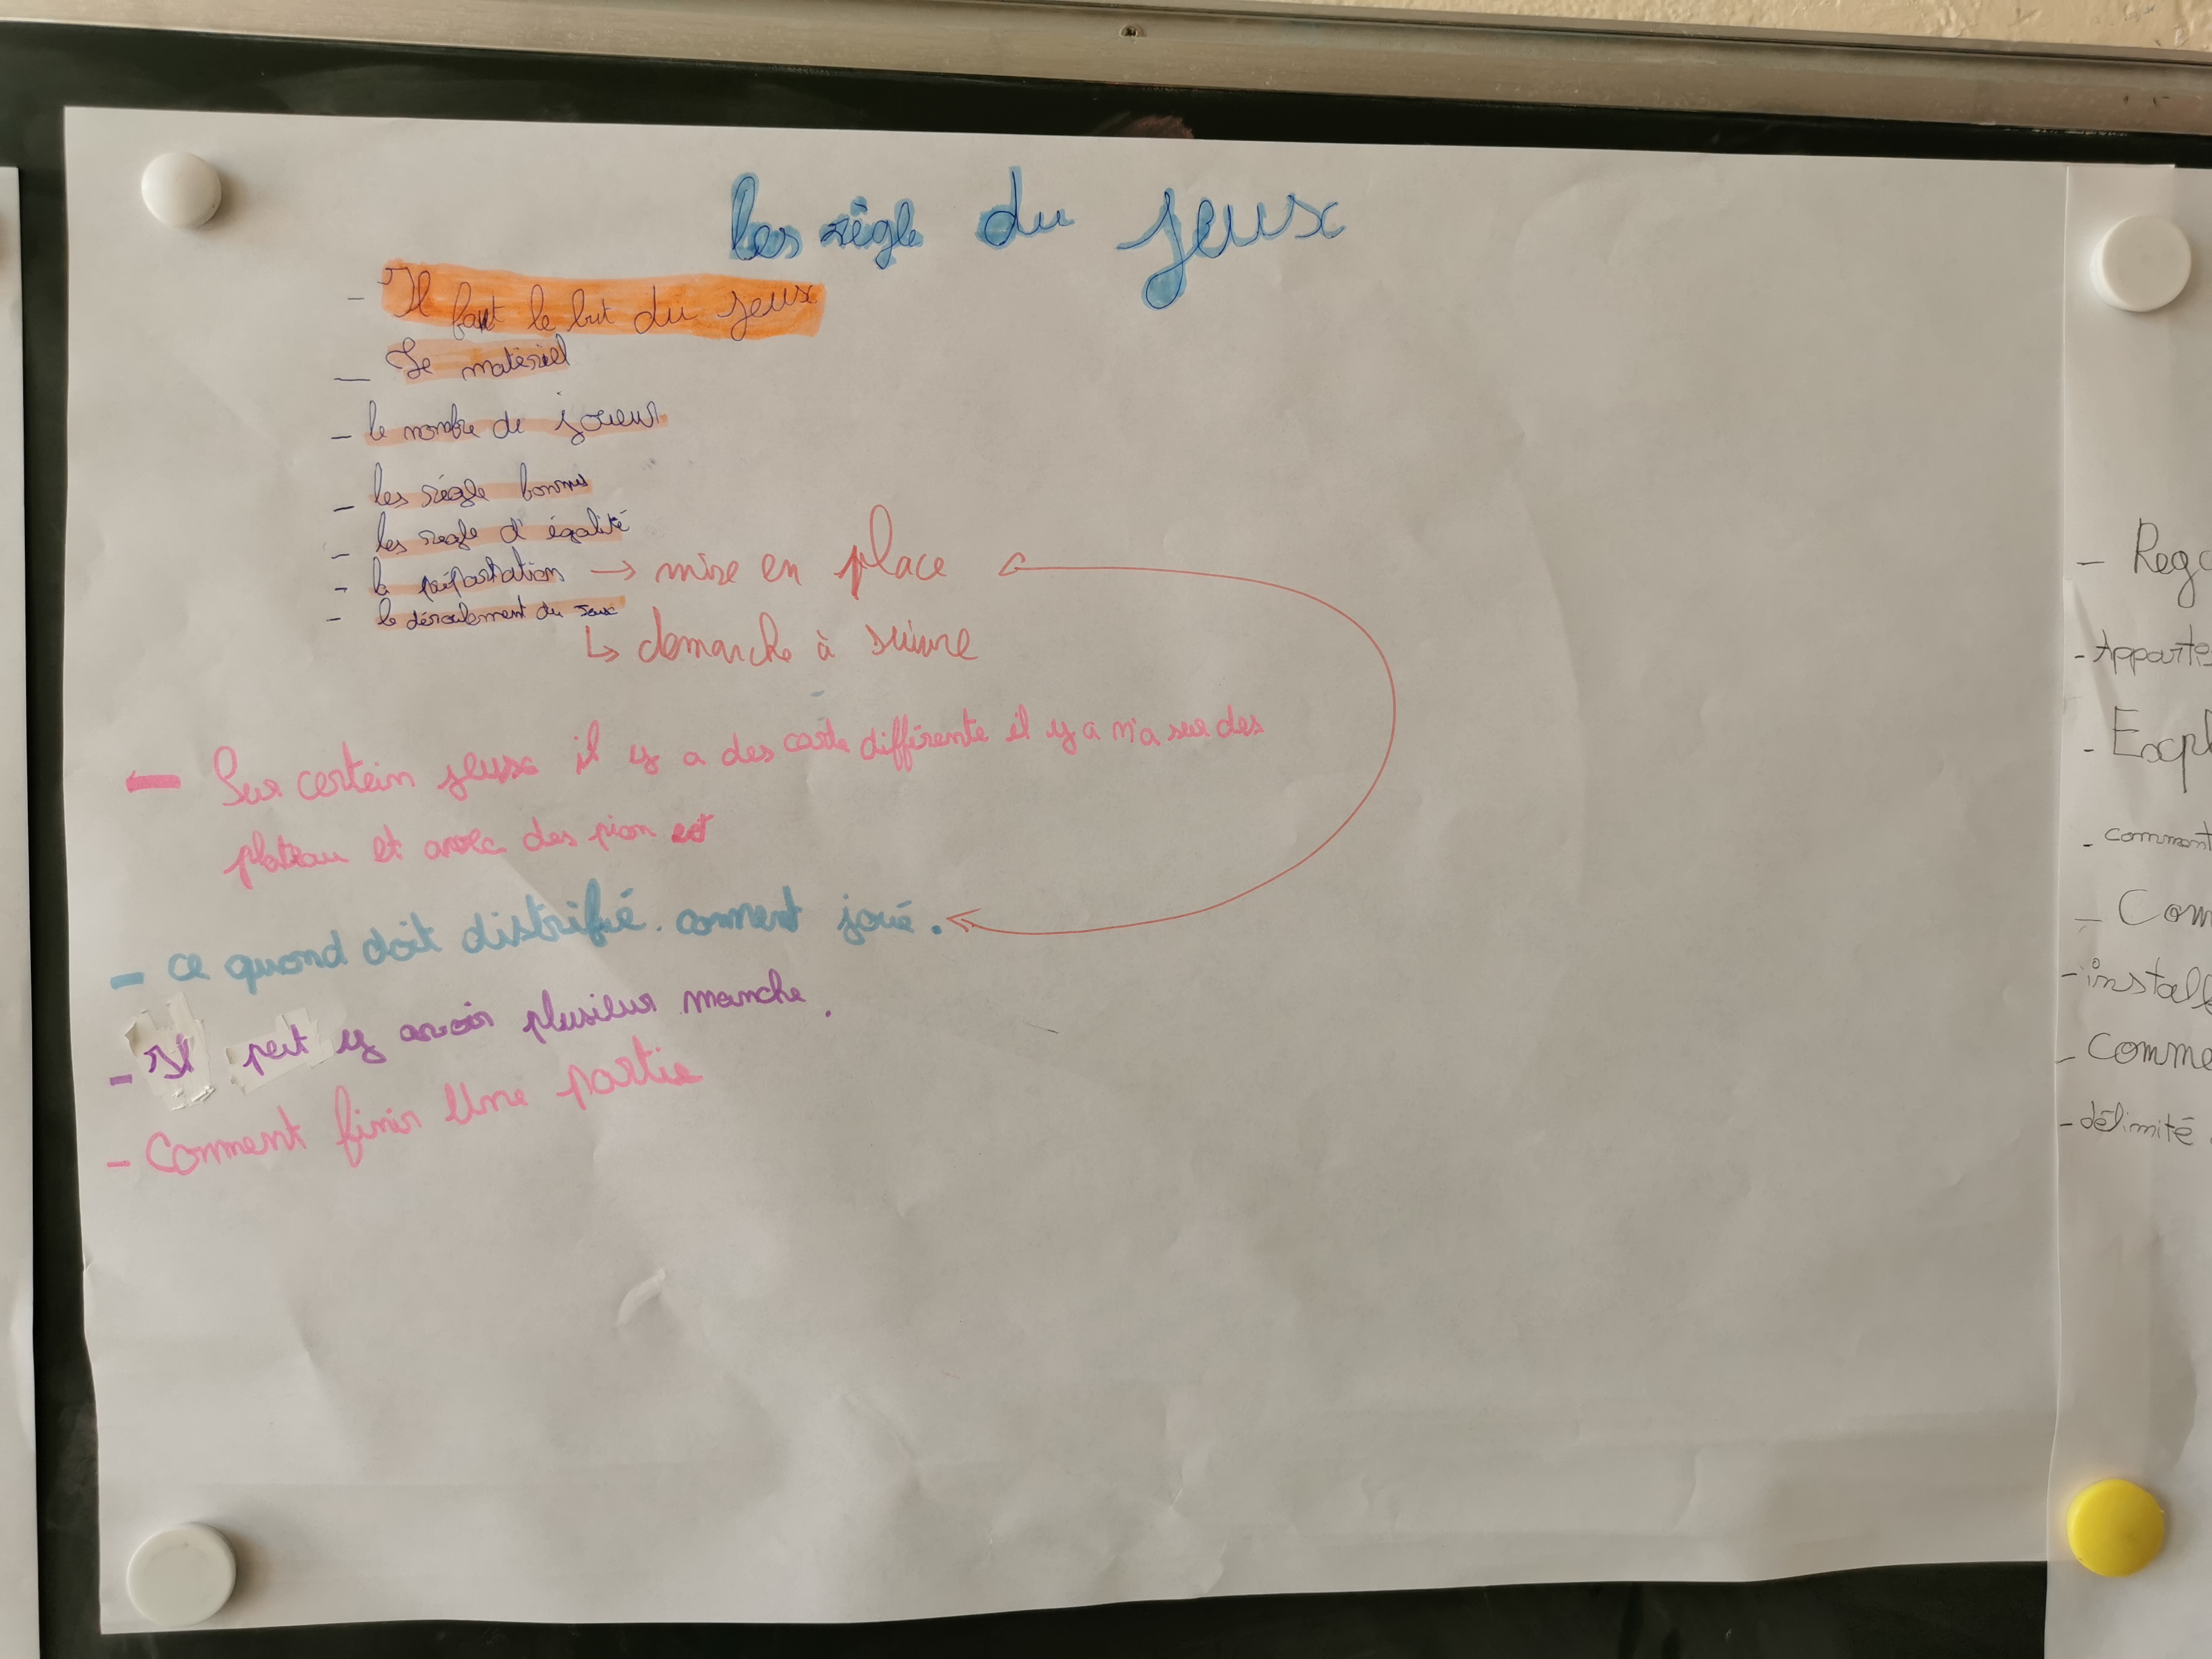 les règle du jeux
- Il faut le but du jeux
- Le matériel
- le nombre de joueur
- les règle bonus
- les règle d'égalité
- la préparation → mise en place
- le déroulement du jeux
↳ demarche à suivre
- Sur certein jeux il y a des carte différente il y a n'a sur des
plateau et avec des pion et
- ce quond doit distribué. comment joué.
- Il peut y avoir plusieur manche.
- Comment finir Une partie
- Reg
- Apparte
- Expl
- comment
- Com
- install
- Comme
- délimité